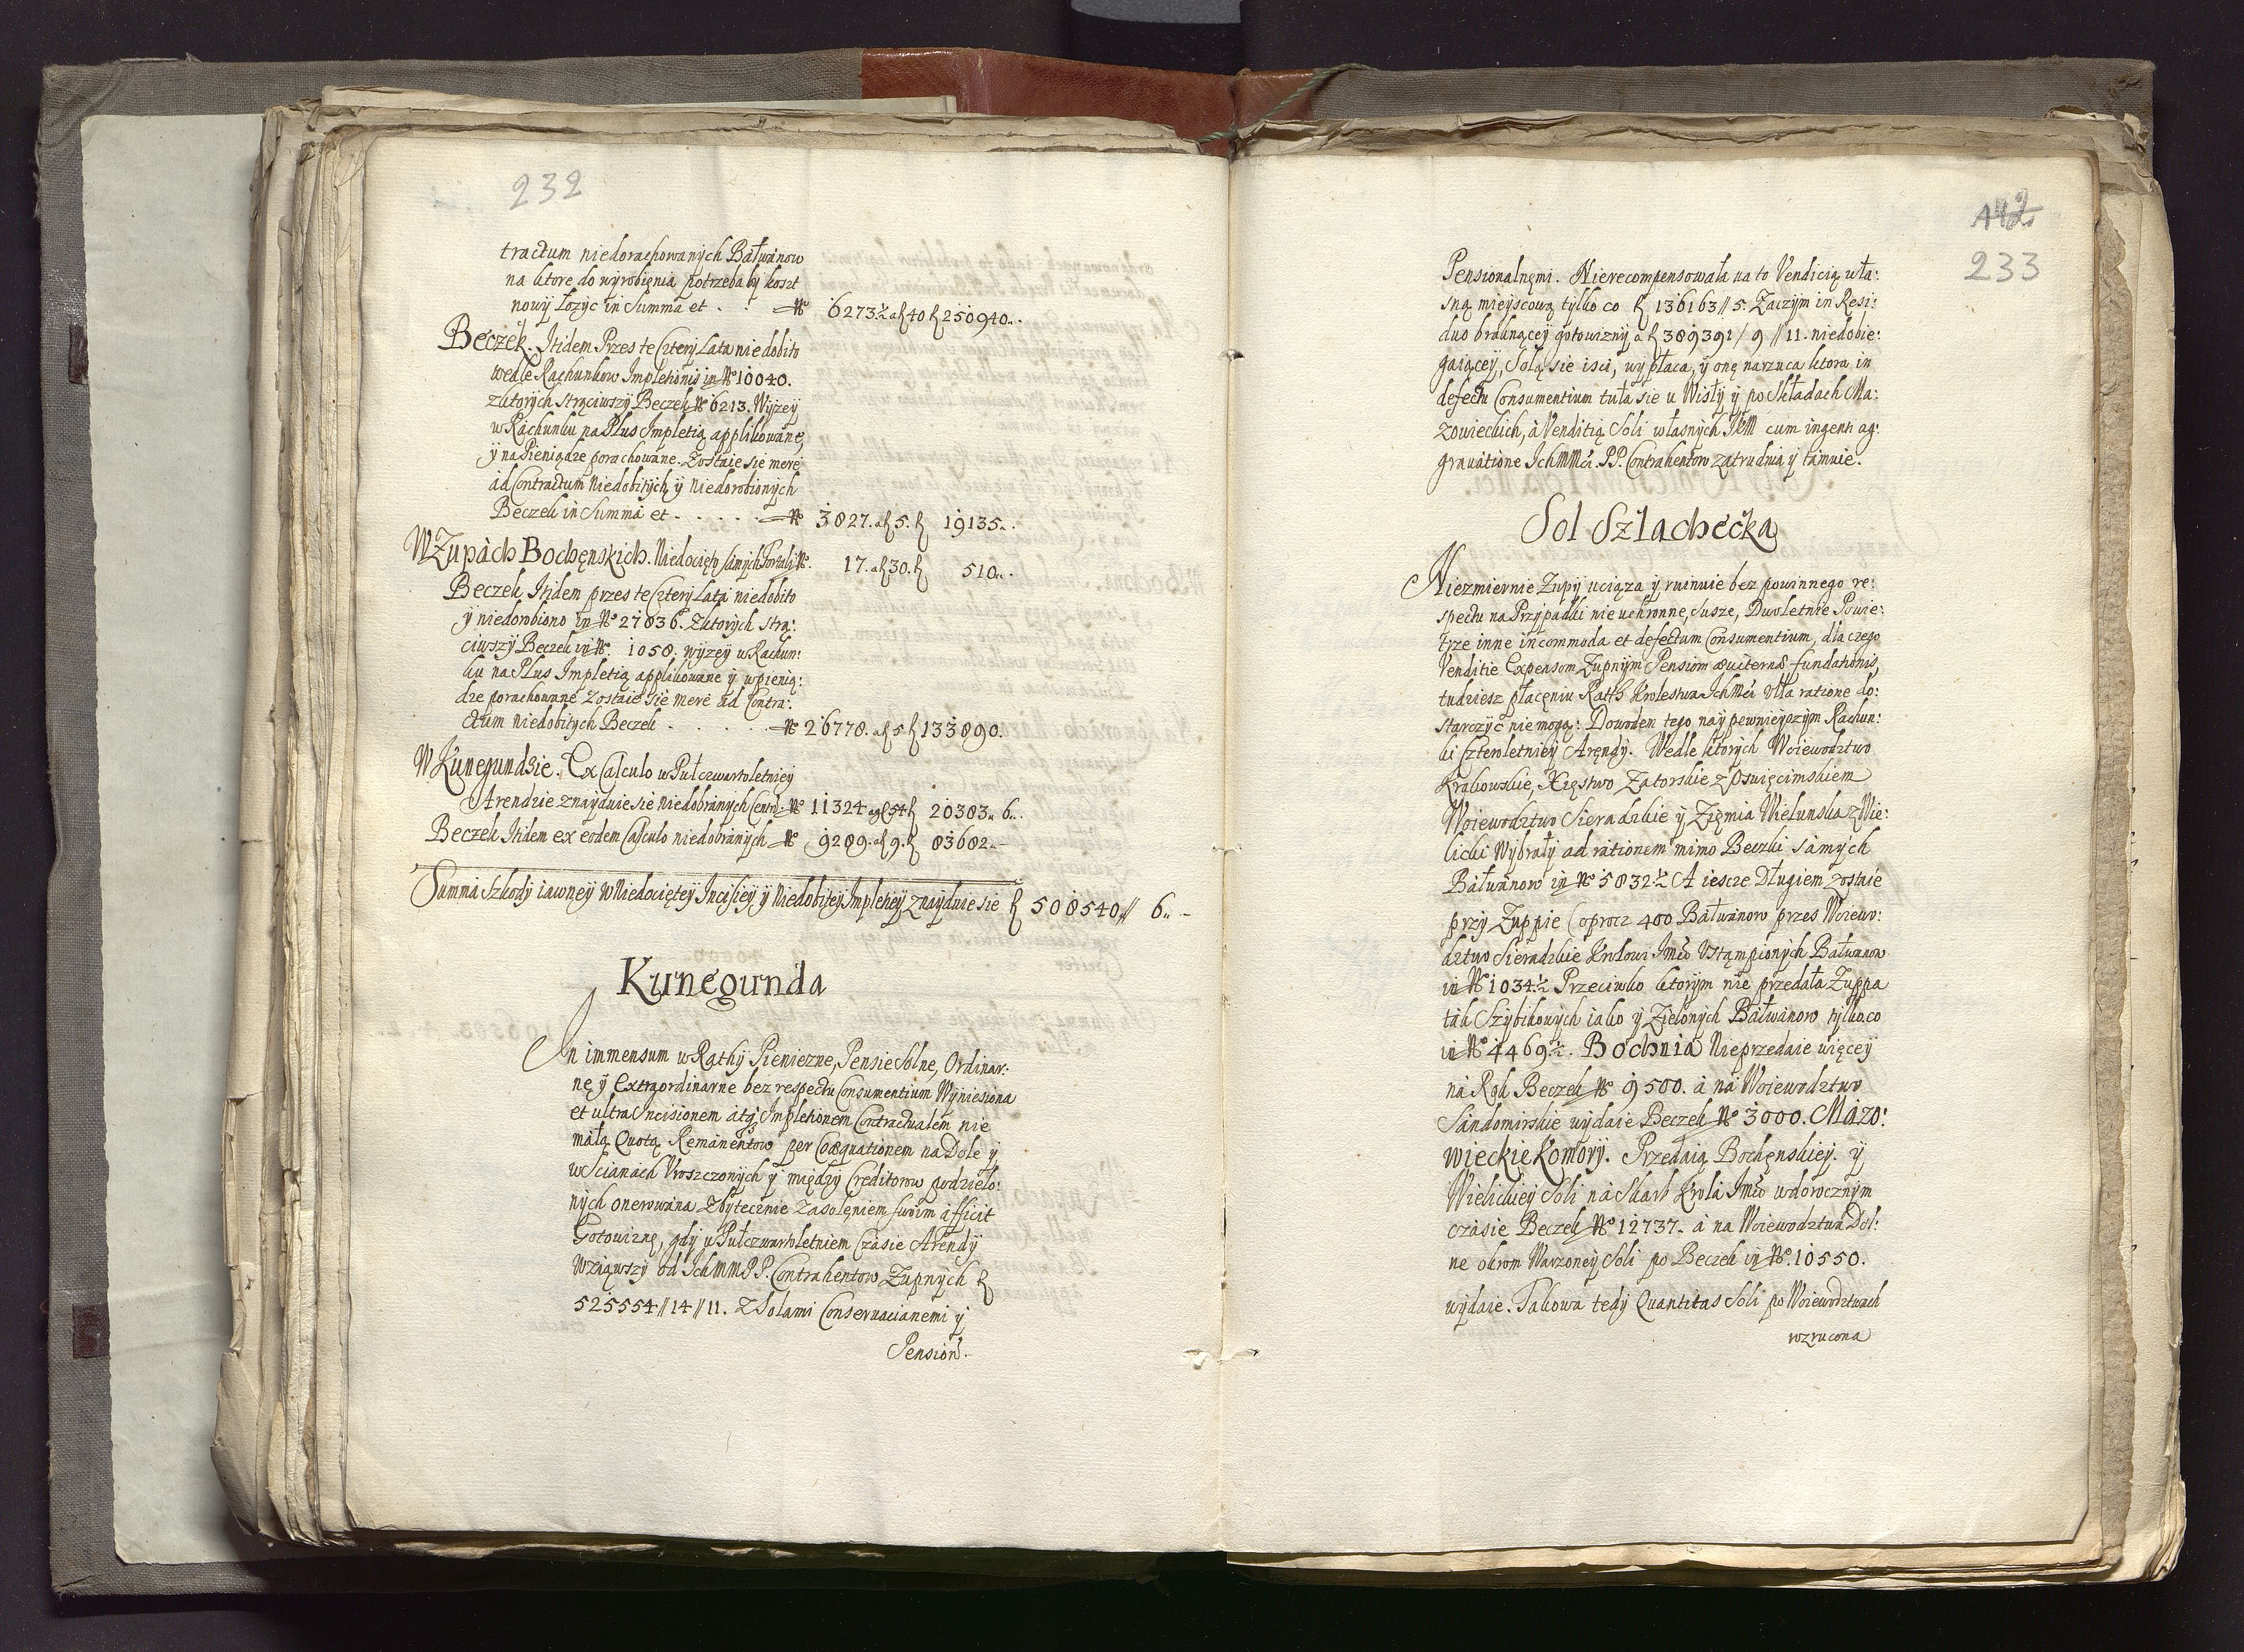 232
tractum niedorachowanych Bałwanow
na ktore do wyrobięnia potrzeba by koszt
nowy łozyc in Summa et . . — No 6273½ a ƒ 40 ƒ 250940..
Beczek. Itidem Przes te Cztery Lata niedobito
wedle Rachunkow Impletionis in No 10040.
z ktorych strąciwszy Beczek No 6213. Wyzey
w Rachunku na Plus Impletią applikowane,
y na Pieniądze porachowane. Zostaie sie merè
ad Contractum Niedobitych y Niedorobionych
Beczek in Summa et . . . . . — No 3827. a ƒ 5. ƒ 19135..
W Zupach Bochęnskich. Niedocięto samych Fortali No. 17. a ƒ 30. ƒ 510..
Beczek Itidem przes te Cztery Lata niedobito
y niedorobiono in No 27836. z ktorych strą:
ciwszy Beczek in No. 1058. wyzey w Rachun:
ku na Plus Impletią applikowane y w pienią:
dze porachowane zostaie sie merè ad Contra:
ctum niedobitych Beczek . . . . . . — No 26778. a ƒ 5 ƒ 133890.
W Kunegundzie. Ex Calculo w Pułczwartoletniey
Arendzie znayduie sie niedobranych Centn: No 11324 a g 54 ƒ 20383 „ 6..
Beczek Itidem ex eodem Calculo niedobranych — No 9289. a ƒ 9. ƒ 83602..
Summa Szkody iawney w Niedociętey Incisiey y Niedobitey Impletiey znayduie sie ƒ 508540 // 6..
Kunegunda
In immensum w Rathy Pieniezne, Pensie Solne, Ordinar:
ne y Extraordinarne bez respectu Consumentium Wyniesiona
et ultra Incisionem atq Impletionem Contractualem nie
małą Quotą Remanentow per Coæquationem na Dole y
w Scianach Vroszczonych y między Creditorow podzielo:
nych onerowana zbytecznie zasolęniem swoim afficit
Gotowiznę, gdy w Pułczwartoletniem Czasie Arendy
Wziąwszy od Ich MM PP. Contrahentow Zupnych ƒ
525554 // 14 // 11. z Solami Conseruacianemi y
Pension.
142
233
Pensionalnęmi. Nierecompensowała na to Vendicią wła:
sną mieyscową tylko co ƒ 136163 // 5. Zaczym in Resi:
duo brakuącey gotowizny a ƒ 389391 / 9 // 11. niedobie:
gaiącey, Solą sie isci, wypłaca, y onę narzuca ktora in
defectu Consumentium tuła sie u Wisły y po Składach Ma:
zowieckich, a Venditią Soli własnych JKM cum ingenti ag:
grauatione Ich MMci. PP. Contrahentow zatrudnia y tamuie.
Sol Szlachecka
Niezmiernie Zupy uciąza y ruinuie bez powinnego re:
spectu na Przypadki nieuchronne, Susze, Dwoletnie Powie:
trze inne incommoda et defectum Consumentium, dla czego
Venditie Expensom Zupnym Pensiom æuiternæ fundationis,
tudziesz płacęniu Rath Krolestwa Ich Mci Vlla ratione do:
starczyć nie mogą: Dowodem tego naypewnieyszym Rachun:
ki Czteroletniey Aręndy. Wedle ktorych Woiewodztwo
Krakowskie, Xięstwo Zatorskie z Oswięcimskiem
Woiewodztwo Sieradzkie y Zięmia Wielunska z Wie:
liczki Wybrały ad rationem mimo Beczki samych
Bałwanow in No 5832½ A iescze Długiem zostaie
przy Zuppie (oprocz 400 Bałwanow przes Woiewo:
dztwo Sieradzkie Krolowi Jmci Vstąmpionych Bałwanow
in No 1034½ Przeciwko ktorym nie przedała Zuppa
tak Szybikowych iako y Zielonych Bałwanow tylko co
in No 4469½. Bochnia Nieprzedaie więcey
na Rok Beczek No 9500. a na Woiewodztwo
Sandomirskie wydaie Beczek No 3000. Mazo:
wieckie Komory. Przedaią Bochęnskiey. y
Wielickiey Soli na Skarb Krola Jmci w dorocznym
czasie Beczek No 12737. a na Woiewodztwa Dol:
ne okrom Warzoney Soli po Beczek in No. 10550.
wydaie. Takowa tedy Quantitas Soli po Woiewodztwach
wzrucona